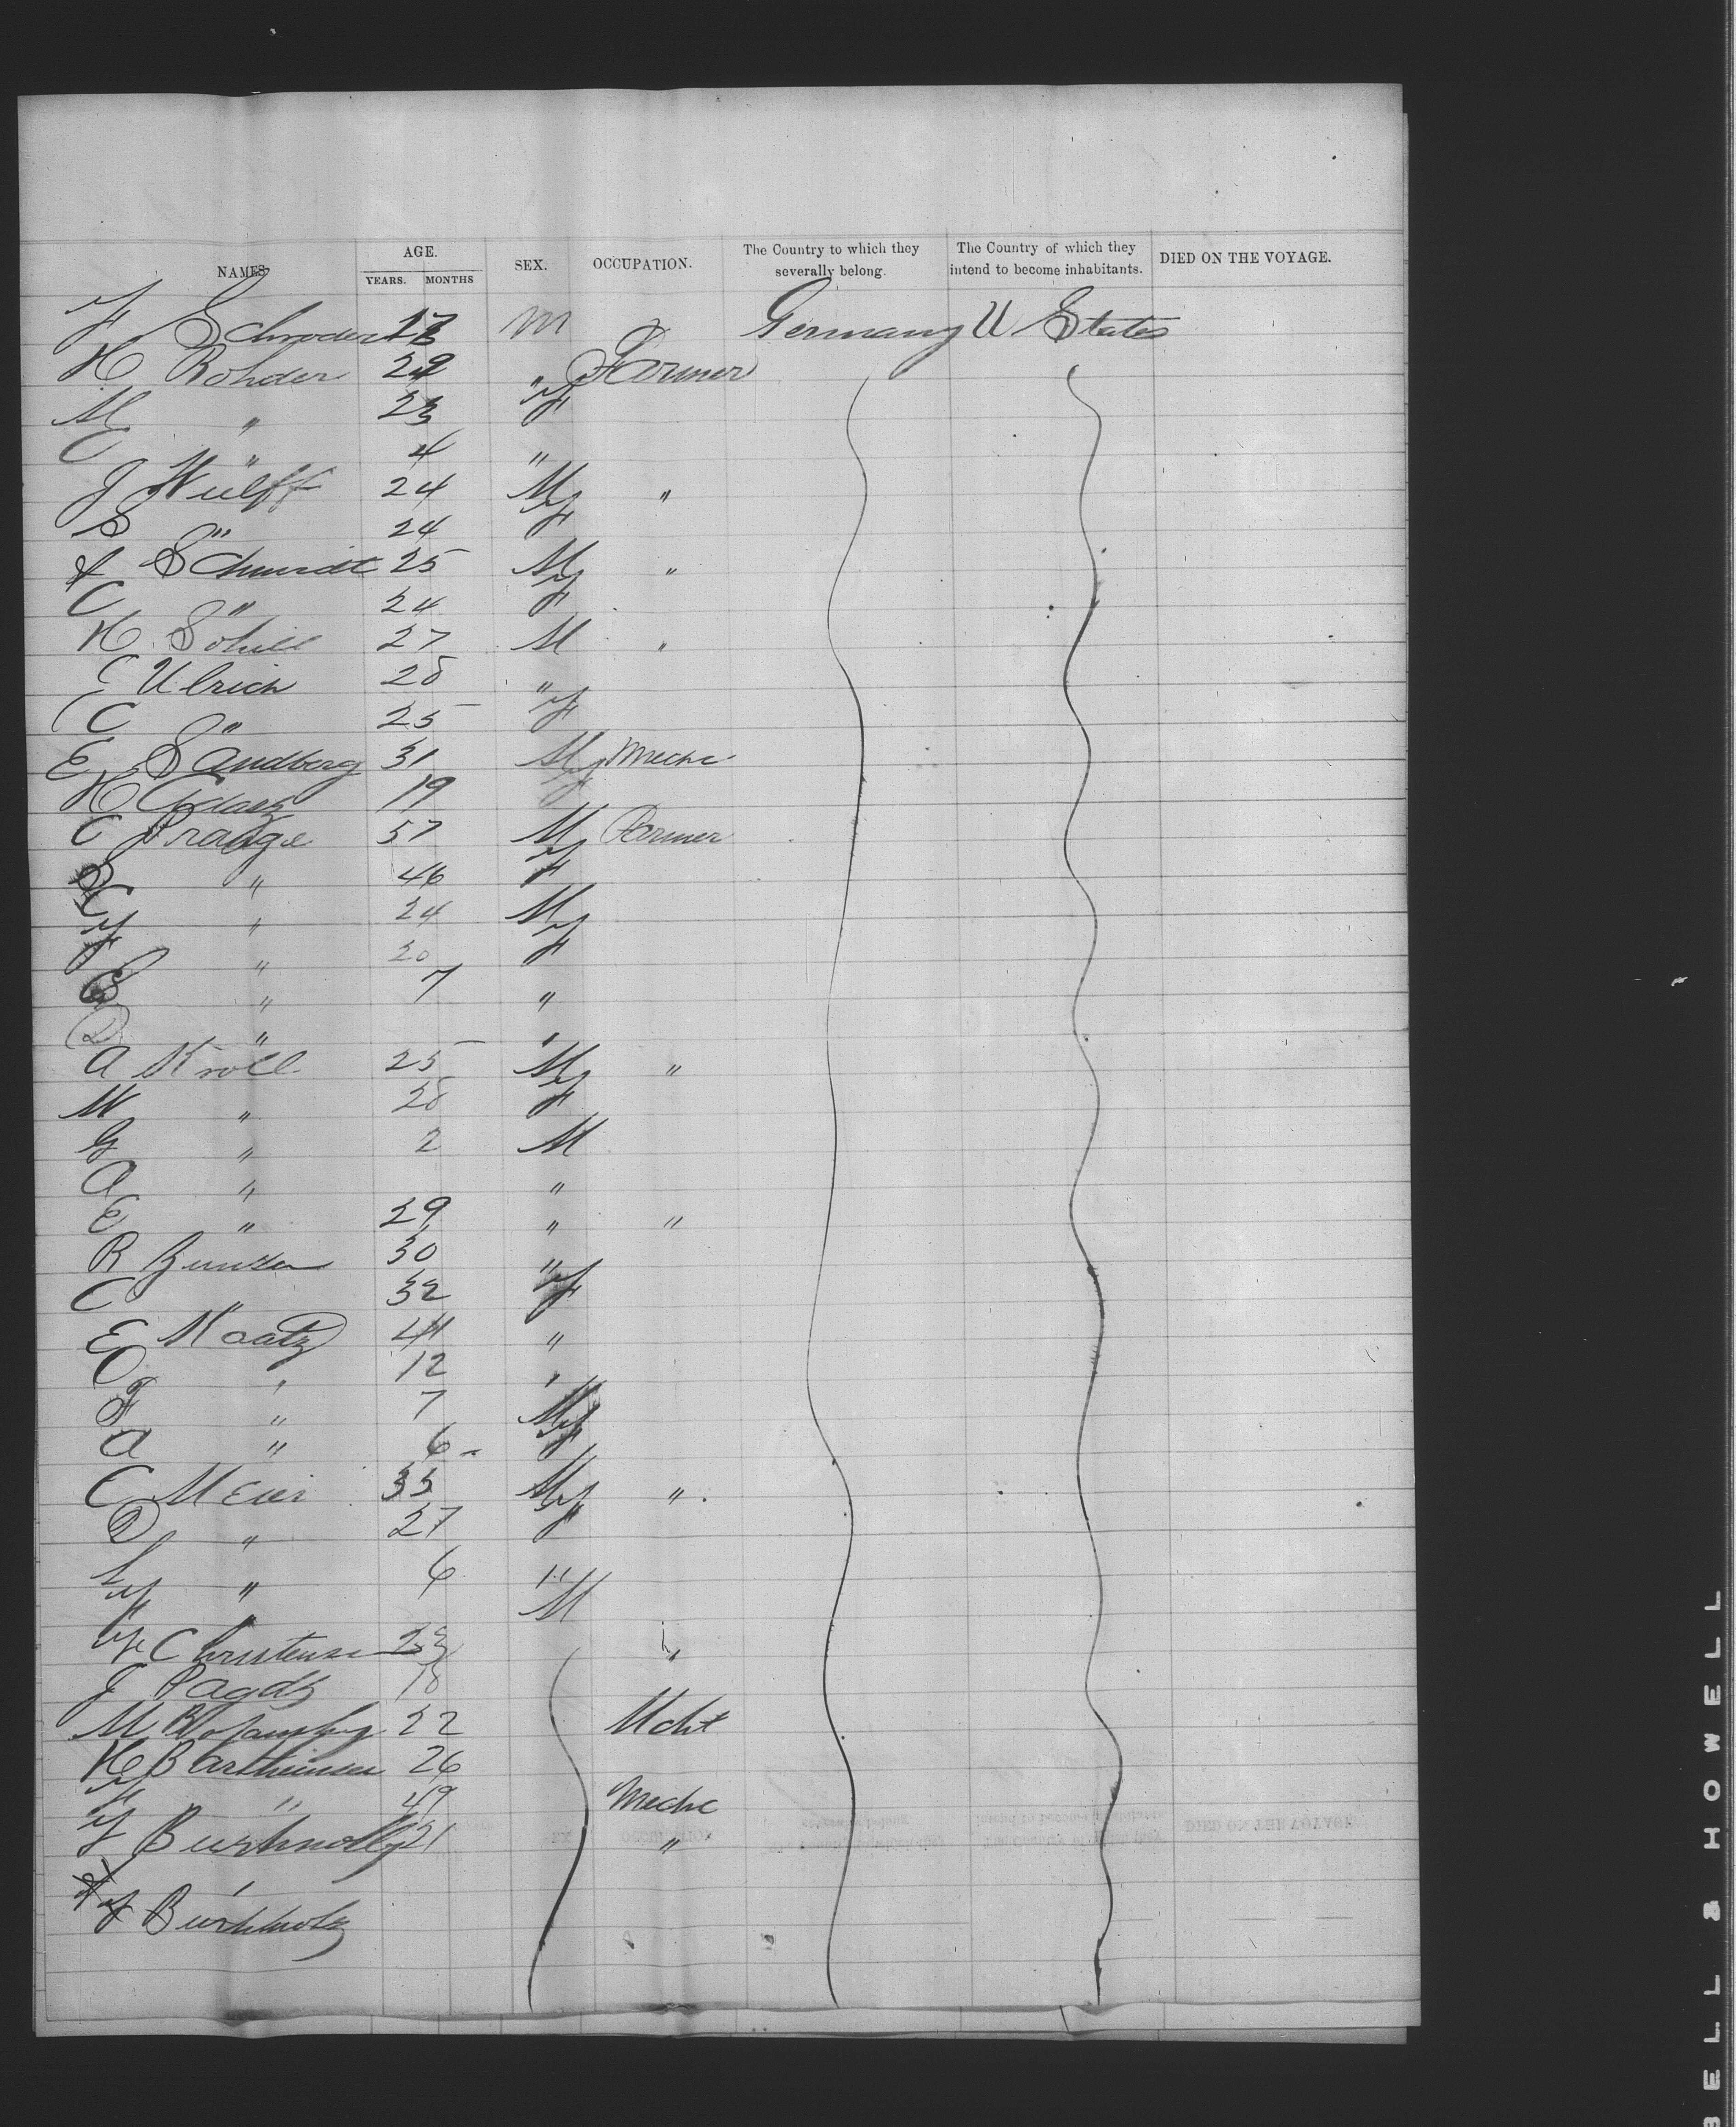 NAMES AGE. YEARS. MONTHS SEX. OCCUPATION. The Country to which they severally belong. The Country of which they intend to become inhabitants. DIED ON THE VOYAGE.
F Schroder M Germany U States
H Rohder 29 " Farmer
M " 23 F
C " 4 "
J Wulff 24 M "
S " 24 F
F Schmidt 25 M "
C " 24 F
H Schill 27 M "
E Ulrich 28 "
C " 25 F
E Sandberg 31 M Mechc
H 19 F
C Prange 57 M Farmer
" 46 F
C " 24 M
F " 20 F
" 7 "
" "
A Kroll 25 M "
W " 28 F
G " 2 M
A " "
E " 29 " "
R 30 "
C " 32 F
E Kaatz 41 "
O " 12 "
F " 7 M
A " 6 F
C Meier 33 M "
D " 27 F
" 6 "
F " M
Christensen 23 "
J 18
M 22 Mcht
H Barthensen 26
F " 49 Mechc
F 21 "
F Buchholz
BELL & HOWELL